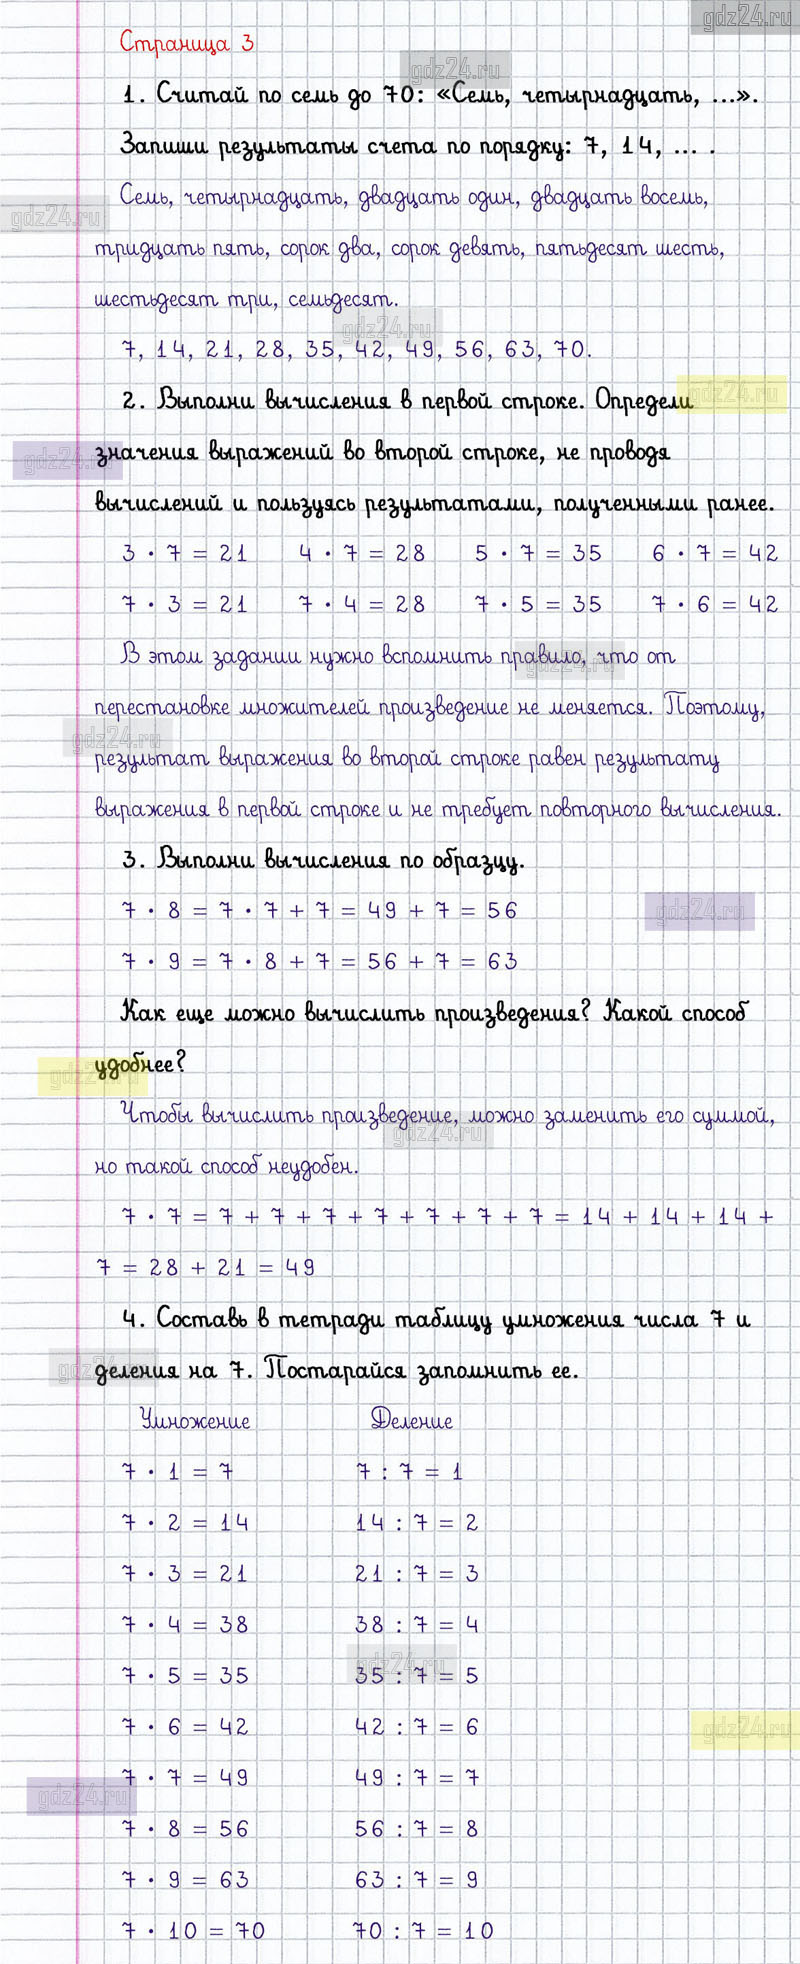 gdz24.ru
Страница 3
gdz24.ru
1. Считай по семь до 70: «Семь, четырнадцать, ...».
Запиши результаты счета по порядку: 7, 14, ... .
Семь, четырнадцать, двадцать один, двадцать восемь,
gdz24.ru
тридцать пять, сорок два, сорок девять, пятьдесят шесть,
шестьдесят три, семьдесят.
gdz24.ru
7, 14, 21, 28, 35, 42, 49, 56, 63, 70.
gdz24.ru
2. Выполни вычисления в первой строке. Определи
значения выражений во второй строке, не проводя
gdz24.ru
вычислений и пользуясь результатами, полученными ранее.
3 · 7 = 21 4 · 7 = 28 5 · 7 = 35 6 · 7 = 42
7 · 3 = 21 7 · 4 = 28 7 · 5 = 35 7 · 6 = 42
В этом задании нужно вспомнить правило, что от
gdz24.ru
перестановке множителей произведение не меняется. Поэтому,
gdz24.ru
результат выражения во второй строке равен результату
выражения в первой строке и не требует повторного вычисления.
3. Выполни вычисления по образцу.
7 · 8 = 7 · 7 + 7 = 49 + 7 = 56
gdz24.ru
7 · 9 = 7 · 8 + 7 = 56 + 7 = 63
Как еще можно вычислить произведения? Какой способ
удобнее?
gdz24.ru
Чтобы вычислить произведение, можно заменить его суммой,
gdz24.ru
но такой способ неудобен.
7 · 7 = 7 + 7 + 7 + 7 + 7 + 7 + 7 = 14 + 14 + 14 +
7 = 28 + 21 = 49
4. Составь в тетради таблицу умножения числа 7 и
деления на 7. Постарайся запомнить ее.
gdz24.ru
Умножение Деление
7 · 1 = 7 7 : 7 = 1
7 · 2 = 14 14 : 7 = 2
7 · 3 = 21 21 : 7 = 3
7 · 4 = 38 38 : 7 = 4
gdz24.ru
7 · 5 = 35 35 : 7 = 5
7 · 6 = 42 42 : 7 = 6
gdz24.ru
7 · 7 = 49 49 : 7 = 7
gdz24.ru
7 · 8 = 56 56 : 7 = 8
7 · 9 = 63 63 : 7 = 9
7 · 10 = 70 70 : 7 = 10